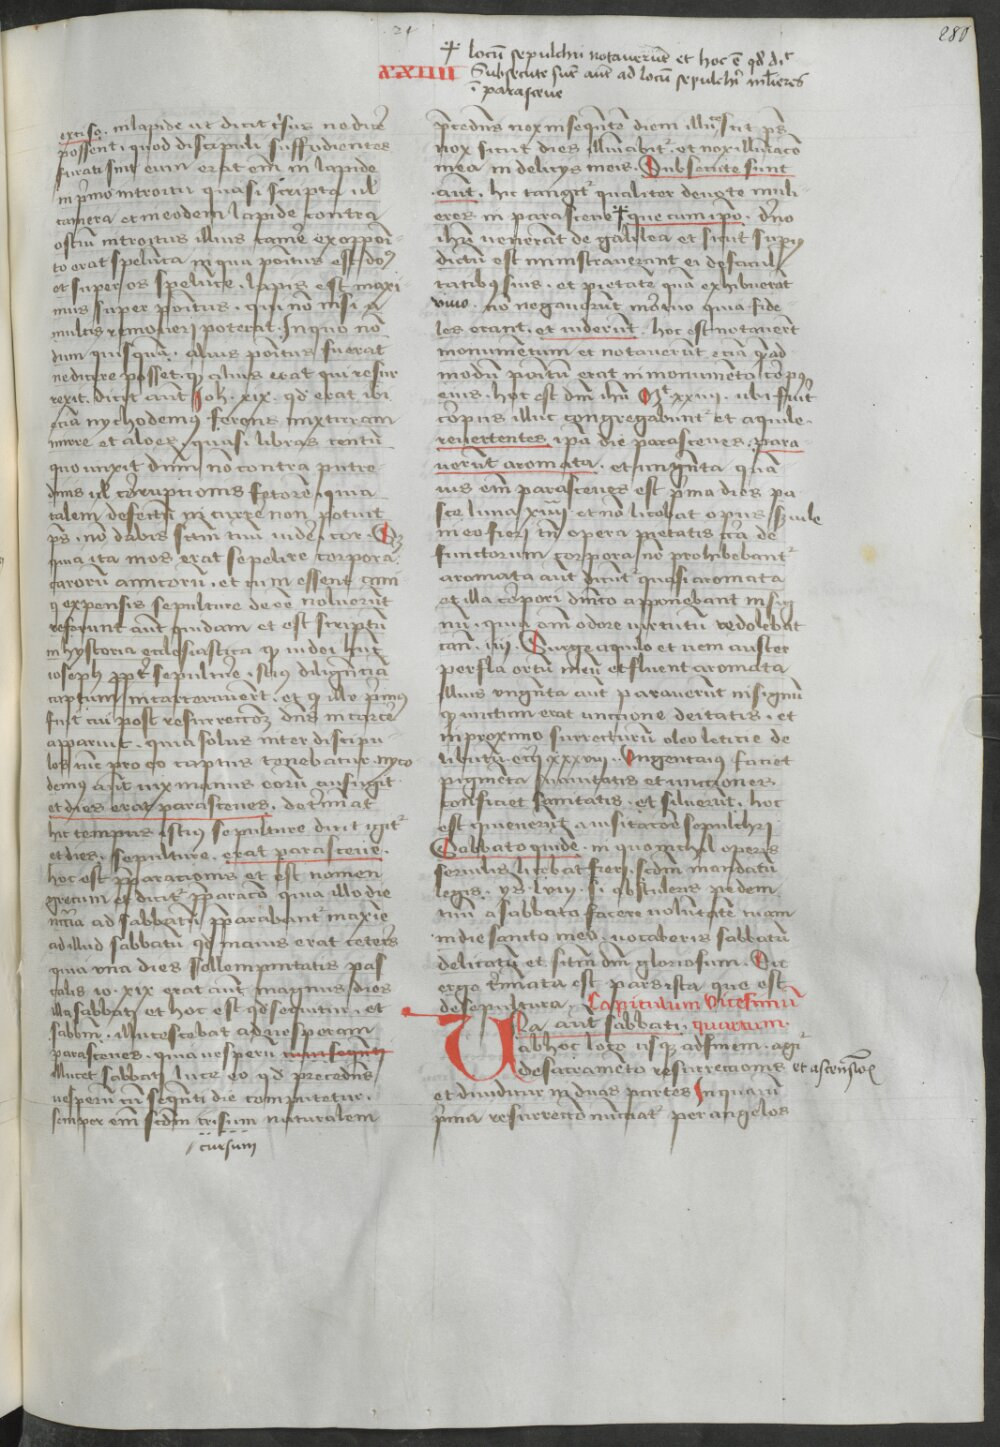 24
280
✝ locū sepulchri notaverūt et hoc ē qd' dr̄
XXIIII
Subsecute sūt aūt ad locū sepulchri mlieres
ī parasceve
exciso. in lapide ut dicit crisus ne dice
possent. quod discipuli suffodientes
furati sint eum erat em̄ in lapide
in primo introitu quasi scripta ul
camera et in eodem lapide contra
ostiū introitus illius camere ex opposi-
to erat spelūca in qua positus est dn̄s
et super os spelūce. lapis est maxi
mus super positus. qui nō nisi a
multis removeri poterat. In quo nō
dum quisquā. alius positus fuerat
ne dicere posset. q alius erat qui resur
rexit. dicit aūt Joh. xix. qd' erat ibi
eciā nychodemus ferens mixturam
mirre et aloes. quasi libras centū
quo unxit dnm̄ nō contra putre-
dinis ul corruptionis fetorē. quia
talem defectū incurre non potuit
ps. nō dabis sctm tuū videre cor.
quia ita mos erat sepelire corpora
carorū amicorū. et cum essent ami
ci expensis sepulture deēē noluerūt
referunt aūt quidam et est scriptū
in hystoria ecclesiastica q iudei hūc
ioseph ppt' sepulture. istius diligenciā
captum incarceraverūt. et q ille primus
fuit cui post resurrectōem dn̄s in carcere
apparuit. quia solus inter discipu
los tūc pro eo captus tenebatur. nyco
demus aūt vix manus eorū aufugit
et dies erat parasceves. determinat
hic tempus istius sepulture dicit igit'
et dies. sepulture. erat parasceve.
hoc est pparacionis et est nomen
grecum et dicit' pparacō. quia illo die
necc̄ia ad sabbatū pparabant' maxie
ad illud sabbatū. qd' maius erat ceteris
quia una dies sollempnitatis pas
calis. io. xix erat aūt magnus dies
ille sabbati et hoc est qd' sequitur. et
sabbm̄. illucescebat ad vesperam
parasceves. quia vesperū cum sequēti
illucet sabbati luce eo qd' precedens
vesperū cū sequēti die computetur.
semper em̄ scdm crisum naturalem
cursum
precedens nox in sequētē diem. illūescit ps.
nox sicut dies illuiabit'. et nox illuiacō
mea in delicijs meis. Subsecute sunt
aūt. hic tangit' qualiter devote muli-
eres in parasceve ✝ que cum ipso. dn̄o
ihū venerāt de galilea et sicut supius
dictū est ministraverant ei de facul
tatibus suis. et pietate quā exhibuerāt
vivo. nō negaverūt mortuo quia fide-
les erant. et viderūt. hoc est notaverūt
monumentum et notaverūt eciā quēad
modū positū erat in monumēto corpus
eius. hoc est dnī ihū Mt. xxiiii. ubi fuit
corpus illuc congregabunt' et aquile.
revertentes ipa die parasceves. para
verūt aromata. et ungēta quā-
vis em̄ parasceves est prima dies pa
sce luna xiiii et nō licebat opus s'vile
in eo fieri tn̄ opera pietatis circa de
functorum corpora nō prohibebant'
aromata aūt dicūt' quasi ar omata
et illa corpori dnīco apponebant in sig
nū. quia omī odore virtutū redolebat
Cant. iiii. Surge aquilo et veni auster
perfla ortū meū et fluent aromata
illius ungēta aūt paraverūt in signū
q unctum erat unctione deitatis. et
in proximo surrecturū oleo leticie de
libutū. eccl' xxxviij. Ungentarius faciet
pigmēta suavitatis et unctiones
conficiet sanitatis. et siluerūt. hoc
est quieverūt a visitacōe sepulchri
Sabbato quidē. in quo nichil operis
servilis licebat fieri scdm mandatū
legis. ys. lviij. si. abstuleris pedem
tuū a sabbato facere volūtatē tuam
in die sancto meo. vocaberis sabbatū
delicatū et sctm dnī gloriosum. Sic
ergo terminata est pars ista que est
de sepultura. Capitulum vicesimū
Una aūt sabbati. quartum.
ab hoc loco usq ad finem. agit'
de sacramēto resurrectionis et ascensiōis
et dividitur in duas partes In quarū
prima resurrectio nuncciat' per angelos